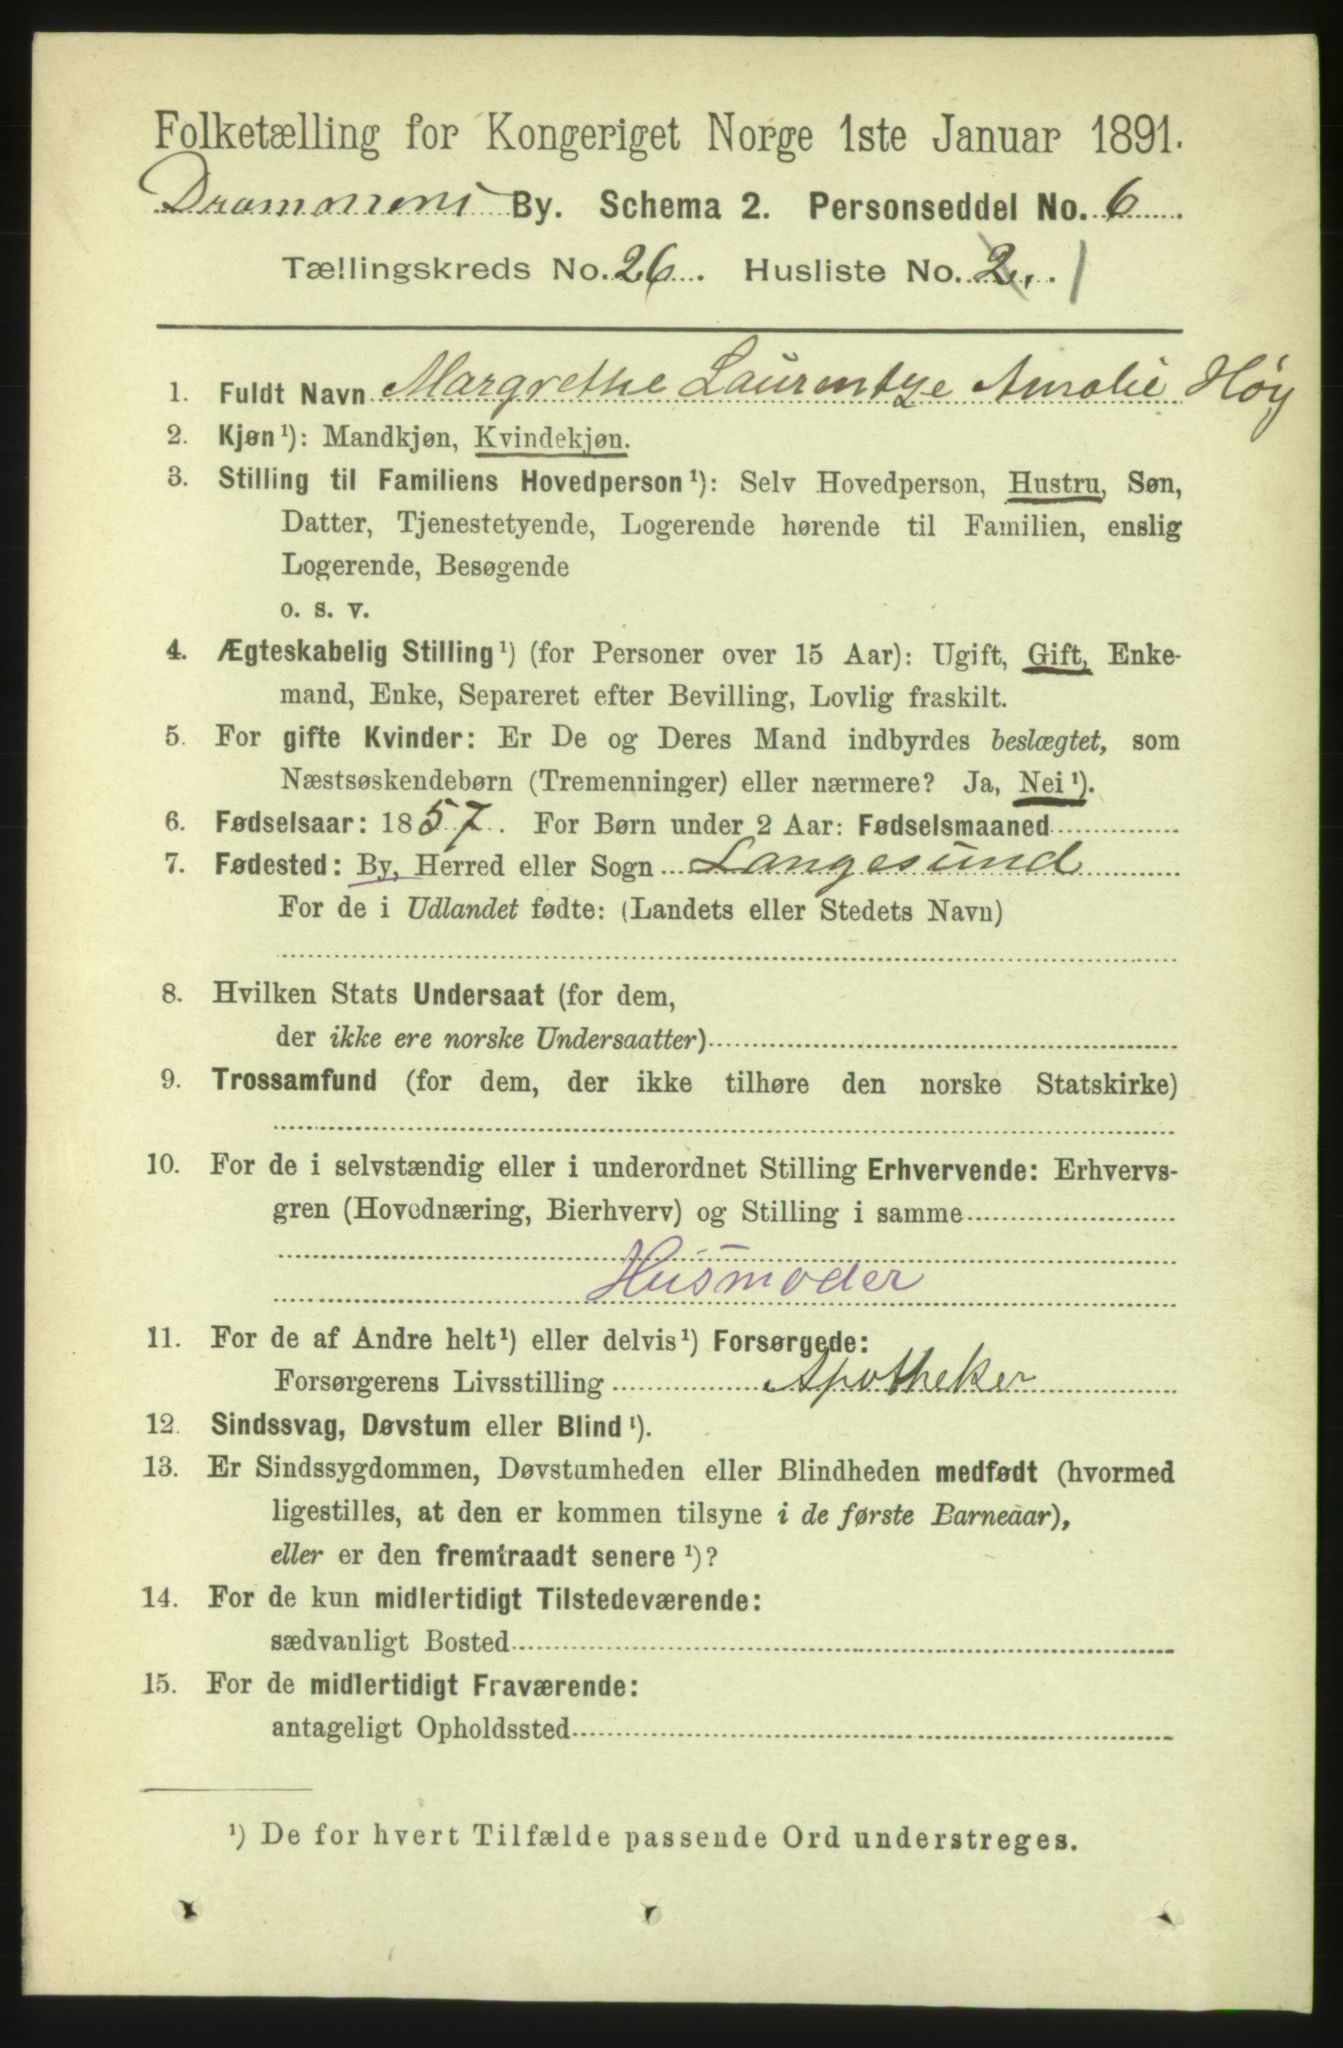 Folketælling for Kongeriget Norge 1ste Januar 1891.
Drammens By. Schema 2. Personseddel No. 6
Tællingskreds No. 26. Husliste No. 2. 1
1. Fuldt Navn Margrethe Laurentze Amalie Høy
2. Kjøn¹): Mandkjøn, Kvindekjøn.
3. Stilling til Familiens Hovedperson¹): Selv Hovedperson, Hustru, Søn,
Datter, Tjenestetyende, Logerende hørende til Familien, enslig
Logerende, Besøgende
o. s. v.
4. Ægteskabelig Stilling¹) (for Personer over 15 Aar): Ugift, Gift, Enke-
mand, Enke, Separeret efter Bevilling, Lovlig fraskilt.
5. For gifte Kvinder: Er De og Deres Mand indbyrdes beslægtet, som
Næstsøskendebørn (Tremenninger) eller nærmere? Ja, Nei¹).
6. Fødselsaar: 1857. For Børn under 2 Aar: Fødselsmaaned
7. Fødested: By, Herred eller Sogn Langesund
For de i Udlandet fødte: (Landets eller Stedets Navn)
8. Hvilken Stats Undersaat (for dem,
der ikke ere norske Undersaatter)
9. Trossamfund (for dem, der ikke tilhøre den norske Statskirke)
10. For de i selvstændig eller i underordnet Stilling Erhvervende: Erhvervs-
gren (Hovednæring, Bierhverv) og Stilling i samme
Husmoder
11. For de af Andre helt¹) eller delvis¹) Forsørgede:
Forsørgerens Livsstilling Apotheker
12. Sindssvag, Døvstum eller Blind¹).
13. Er Sindssygdommen, Døvstumheden eller Blindheden medfødt (hvormed
ligestilles, at den er kommen tilsyne i de første Barneaar),
eller er den fremtraadt senere¹)?
14. For de kun midlertidigt Tilstedeværende:
sædvanligt Bosted
15. For de midlertidigt Fraværende:
antageligt Opholdssted
¹) De for hvert Tilfælde passende Ord understreges.